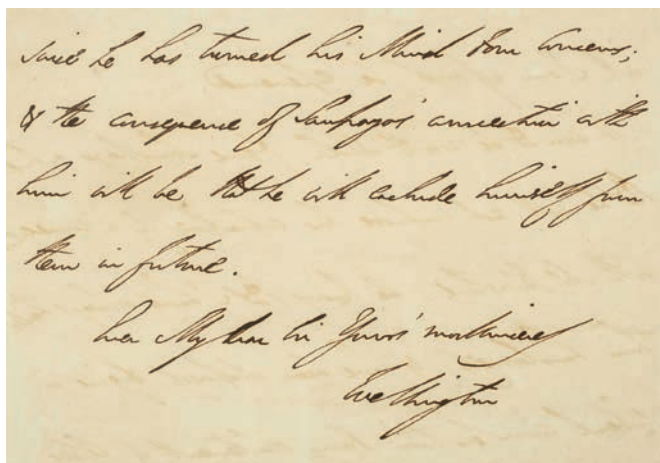 since he has turned his Mind to our concerns;
& the consequence of Sampayo's connection with
him will be that he will exclude himself from
them in future.
Ever My dear Sir Yours most sincerely
Wellington